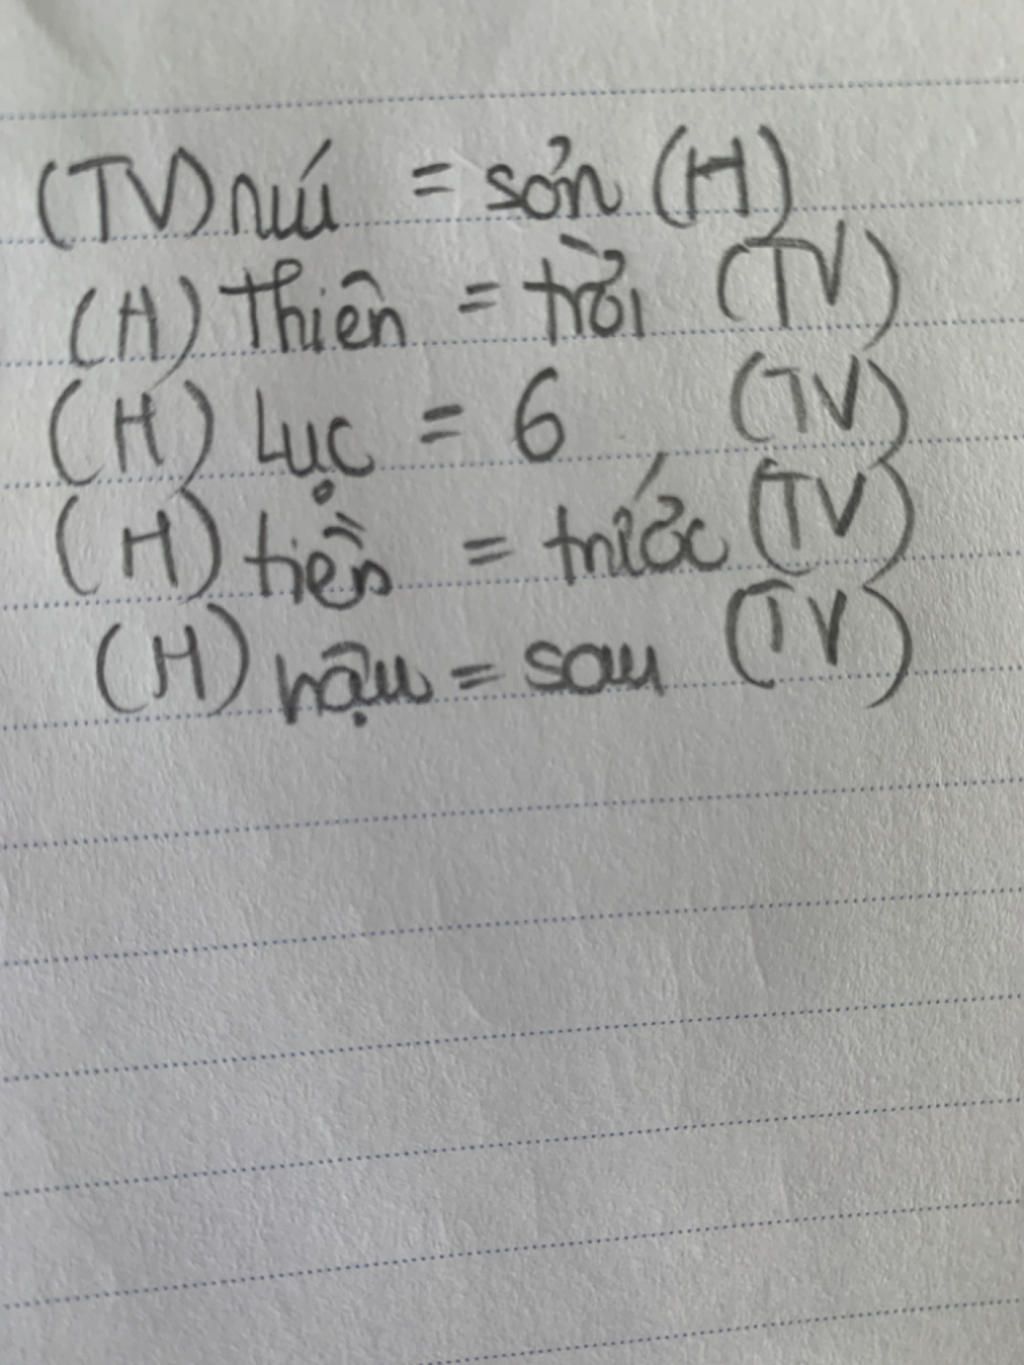 (TV) núi = sơn (H)
(H) Thiên = trời (TV)
(H) Lục = 6 (TV)
(H) tiền = trước (TV)
(H) hậu = sau (TV)